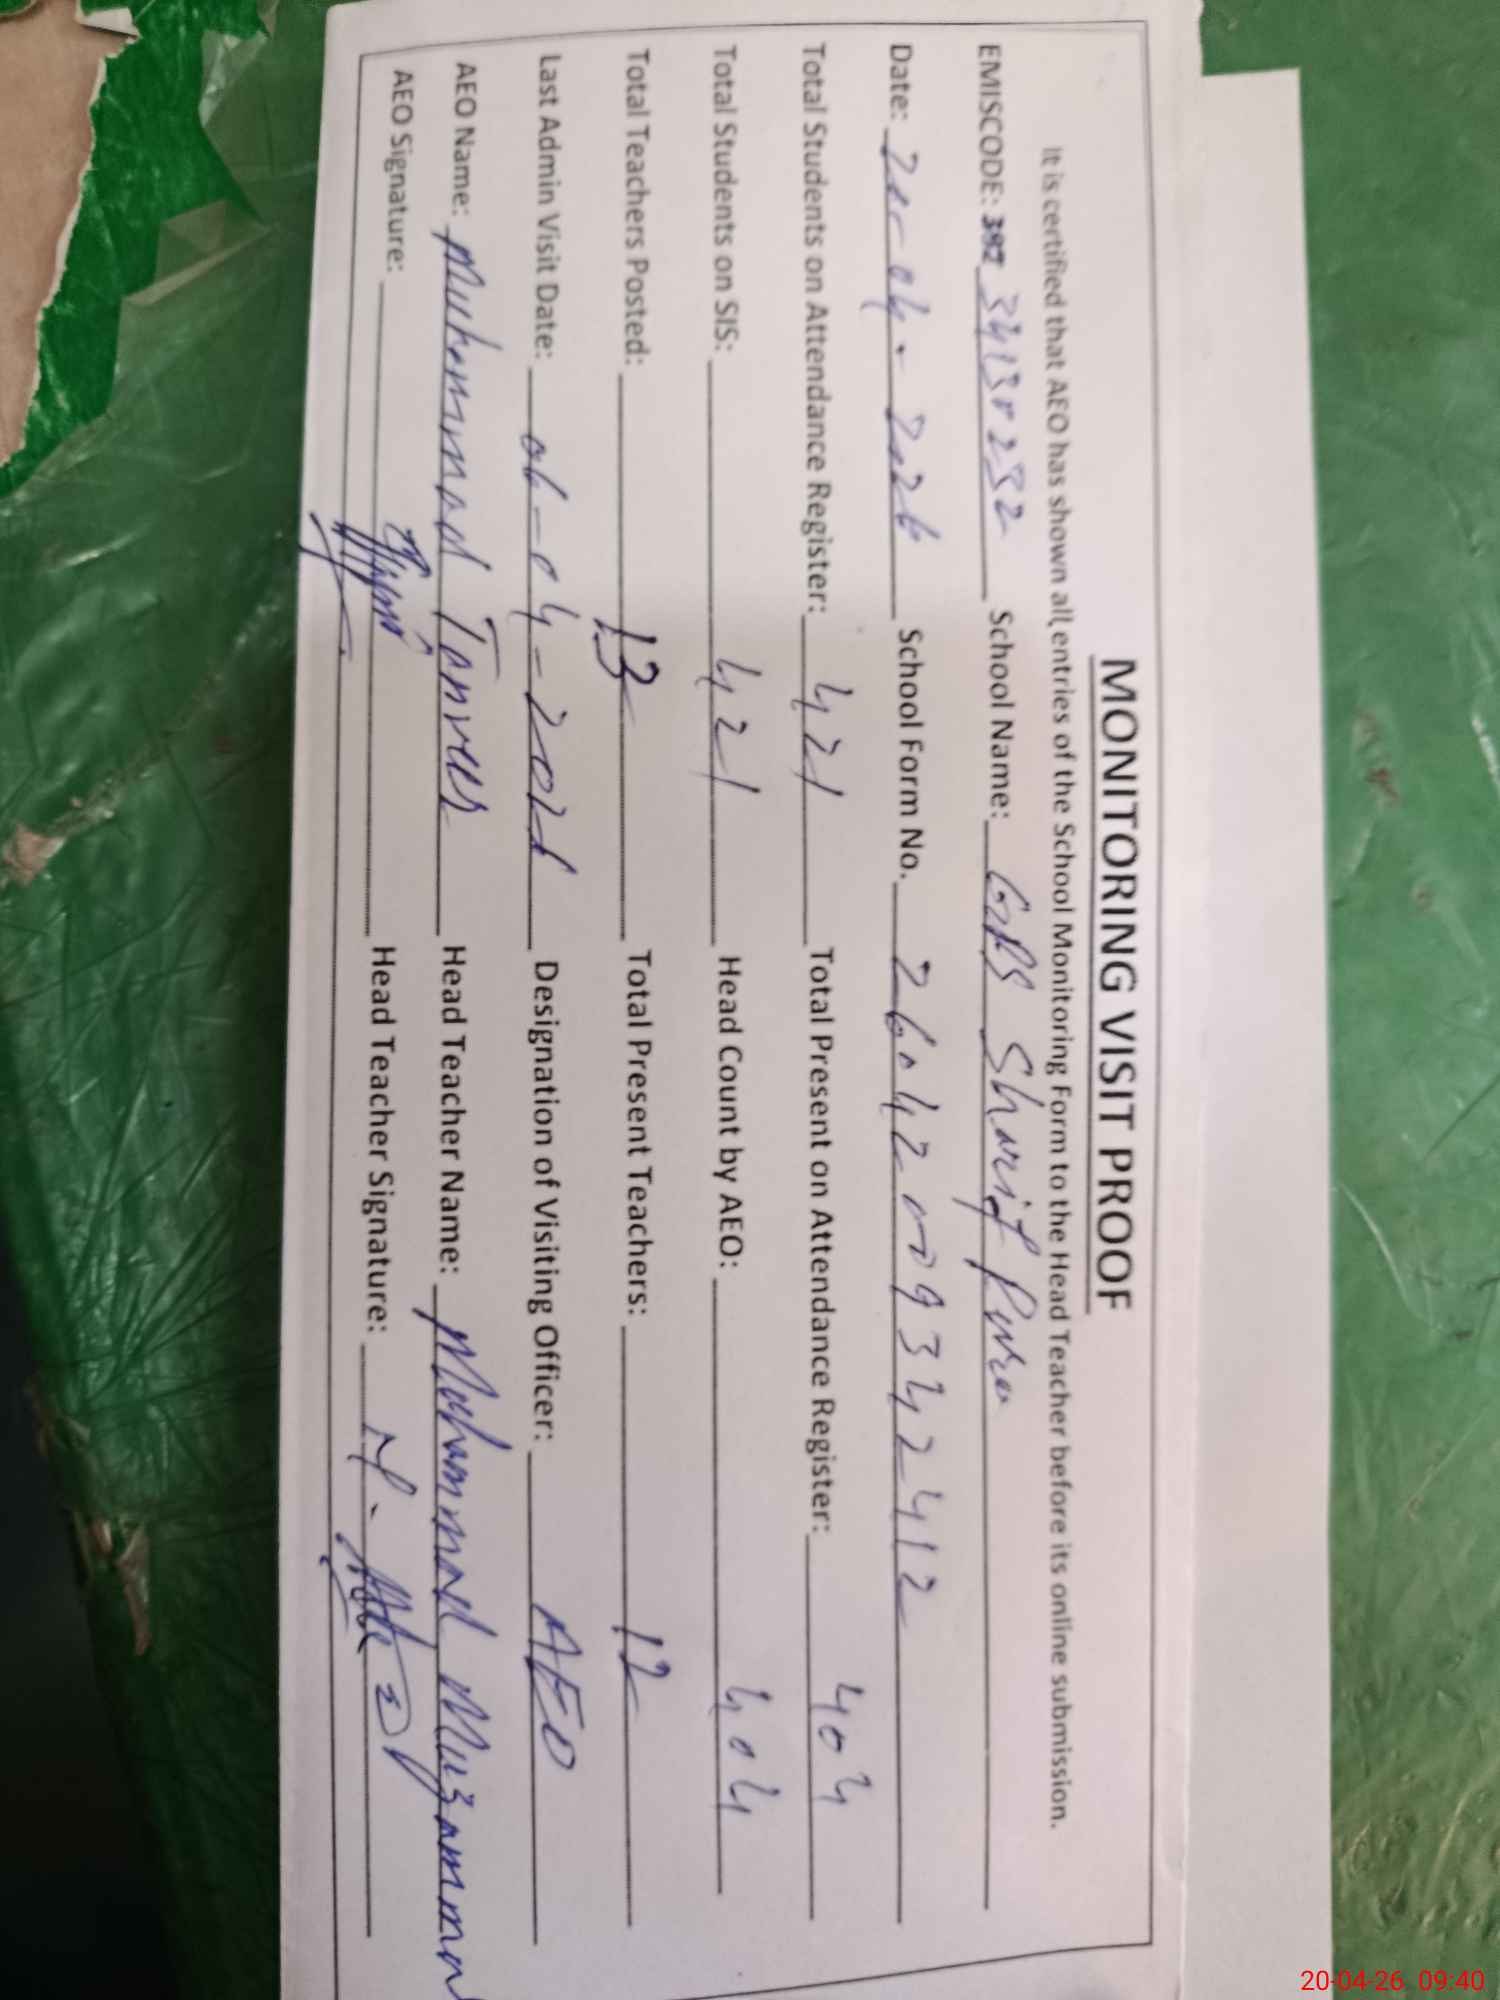 MONITORING VISIT PROOF
It is certified that AEO has shown all entries of the School Monitoring Form to the Head Teacher before its online submission.
EMISCODE: 34130232 School Name: GPS Sharif Pura
Date: 20-04-2026 School Form No. 26042009342412
Total Students on Attendance Register: 421 Total Present on Attendance Register: 404
Total Students on SIS: 421 Head Count by AEO: 404
Total Teachers Posted: 13 Total Present Teachers: 12
Last Admin Visit Date: 06-04-2026 Designation of Visiting Officer: AEO
AEO Name: Muhammad Tanveer Head Teacher Name: Mohammad Muzammal
AEO Signature: Head Teacher Signature:
20-04-26 09:40